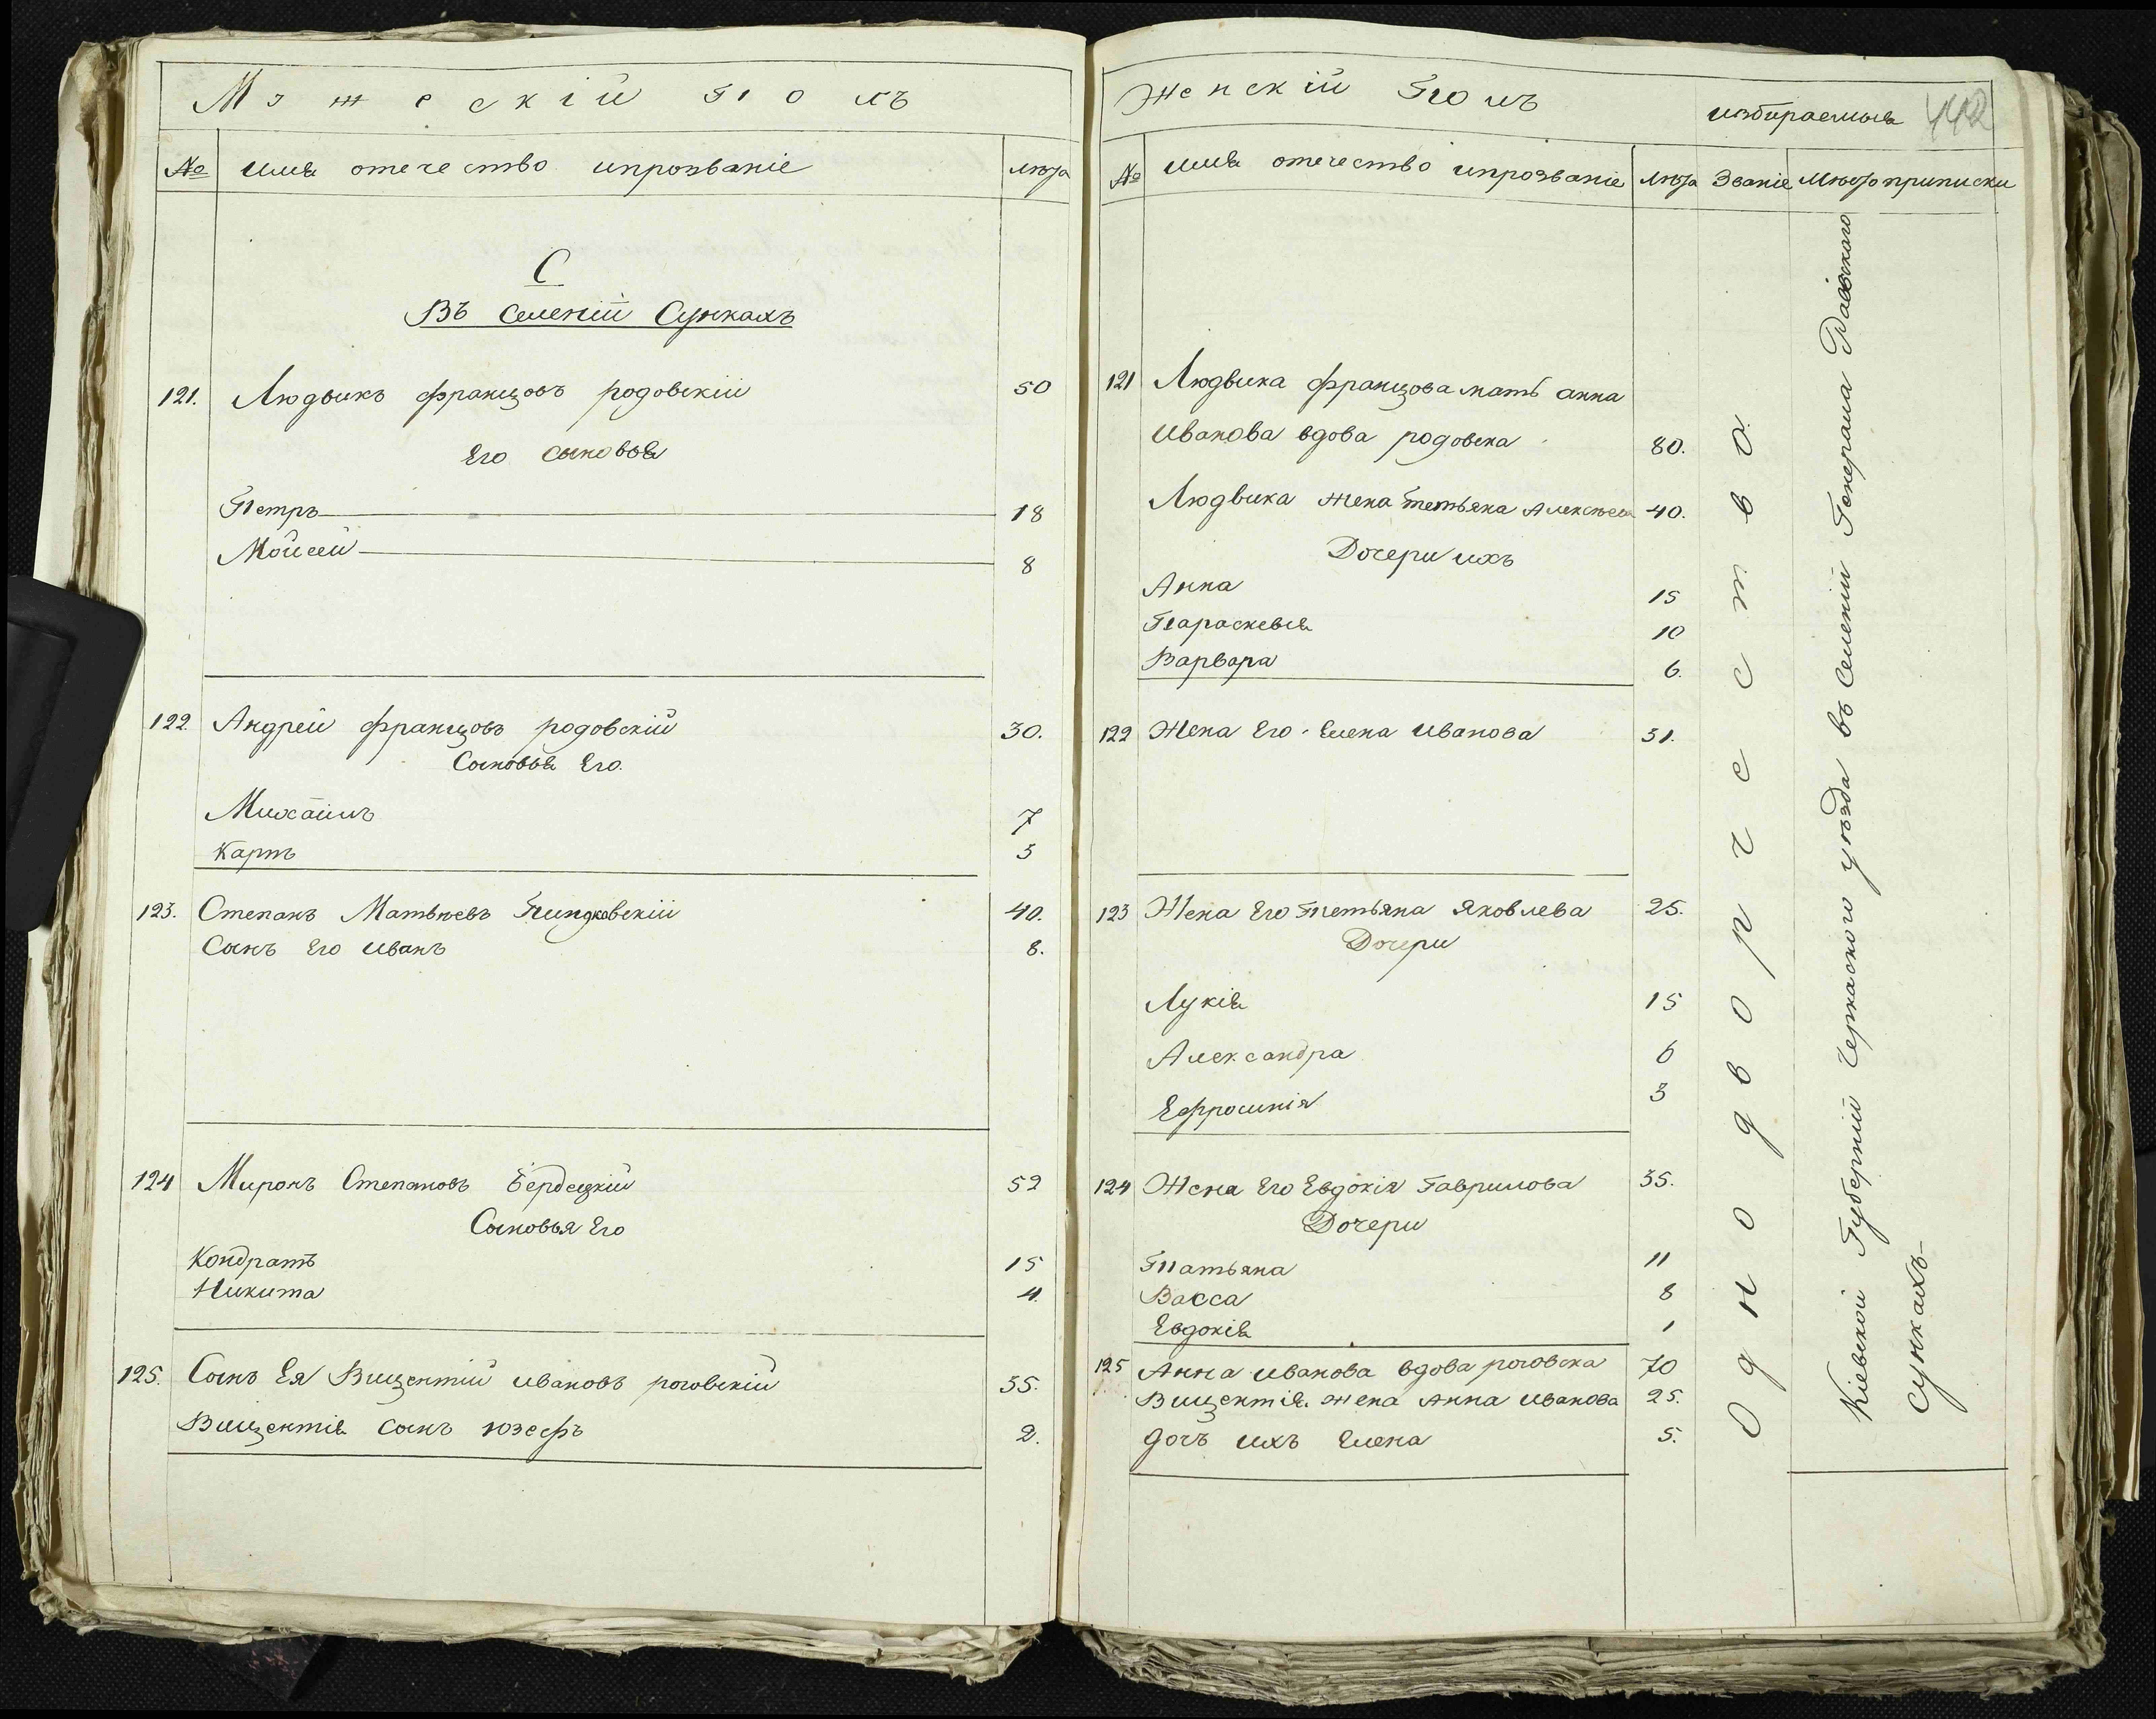 Мужескій полъ
№ имя отечество ипрозваніе лѣта
С
Въ селеніи Сункахъ
121. Людвикъ францовъ родовскій 50
Его сыновья
Петръ 18
Мойсей 8
122. Андрей францовъ родовскій 30.
Сыновья Его.
Михаилъ 7
Карпъ 3
123. Степанъ Матвѣевъ 40.
Сынъ Его Иванъ 8.
124 Миронъ Степановъ Бердецкій 52
Сыновья Его
Кондратъ 15
Никита 4.
125. Сынъ Ея Вицентій ивановъ роговскій 35.
Вицентія сынъ юзефъ 2.
Женскій Полъ избираемыя 442
№ имя отечество ипрозваніе лѣта Званіе Мѣсто приписки
121 Людвика францова мать анна
Иванова вдова родовска 80.
Людвика жена Тетьяна Алексѣева 40.
Дочери ихъ
Анна 15
Параскевія 10
Варвара 6.
122 Жена Его Елена Иванова 31.
123 Жена Его Тетьяна Яковлева 25.
Дочери
Лукія 15
Александра 6
Ефросинія 3
124 Жена Его Евдокія Гаврилова 35.
Дочери
Татьяна 11
Васса 8
Евдокія 1
125 Анна иванова вдова роговска 70
Вицентія жена Анна Иванова 25.
дочь ихъ Елена 5.
Однодворчество.
Кіевской Губерніи Черкаского уѣзда въ Селеніи Генерала Раевского
Сункахъ